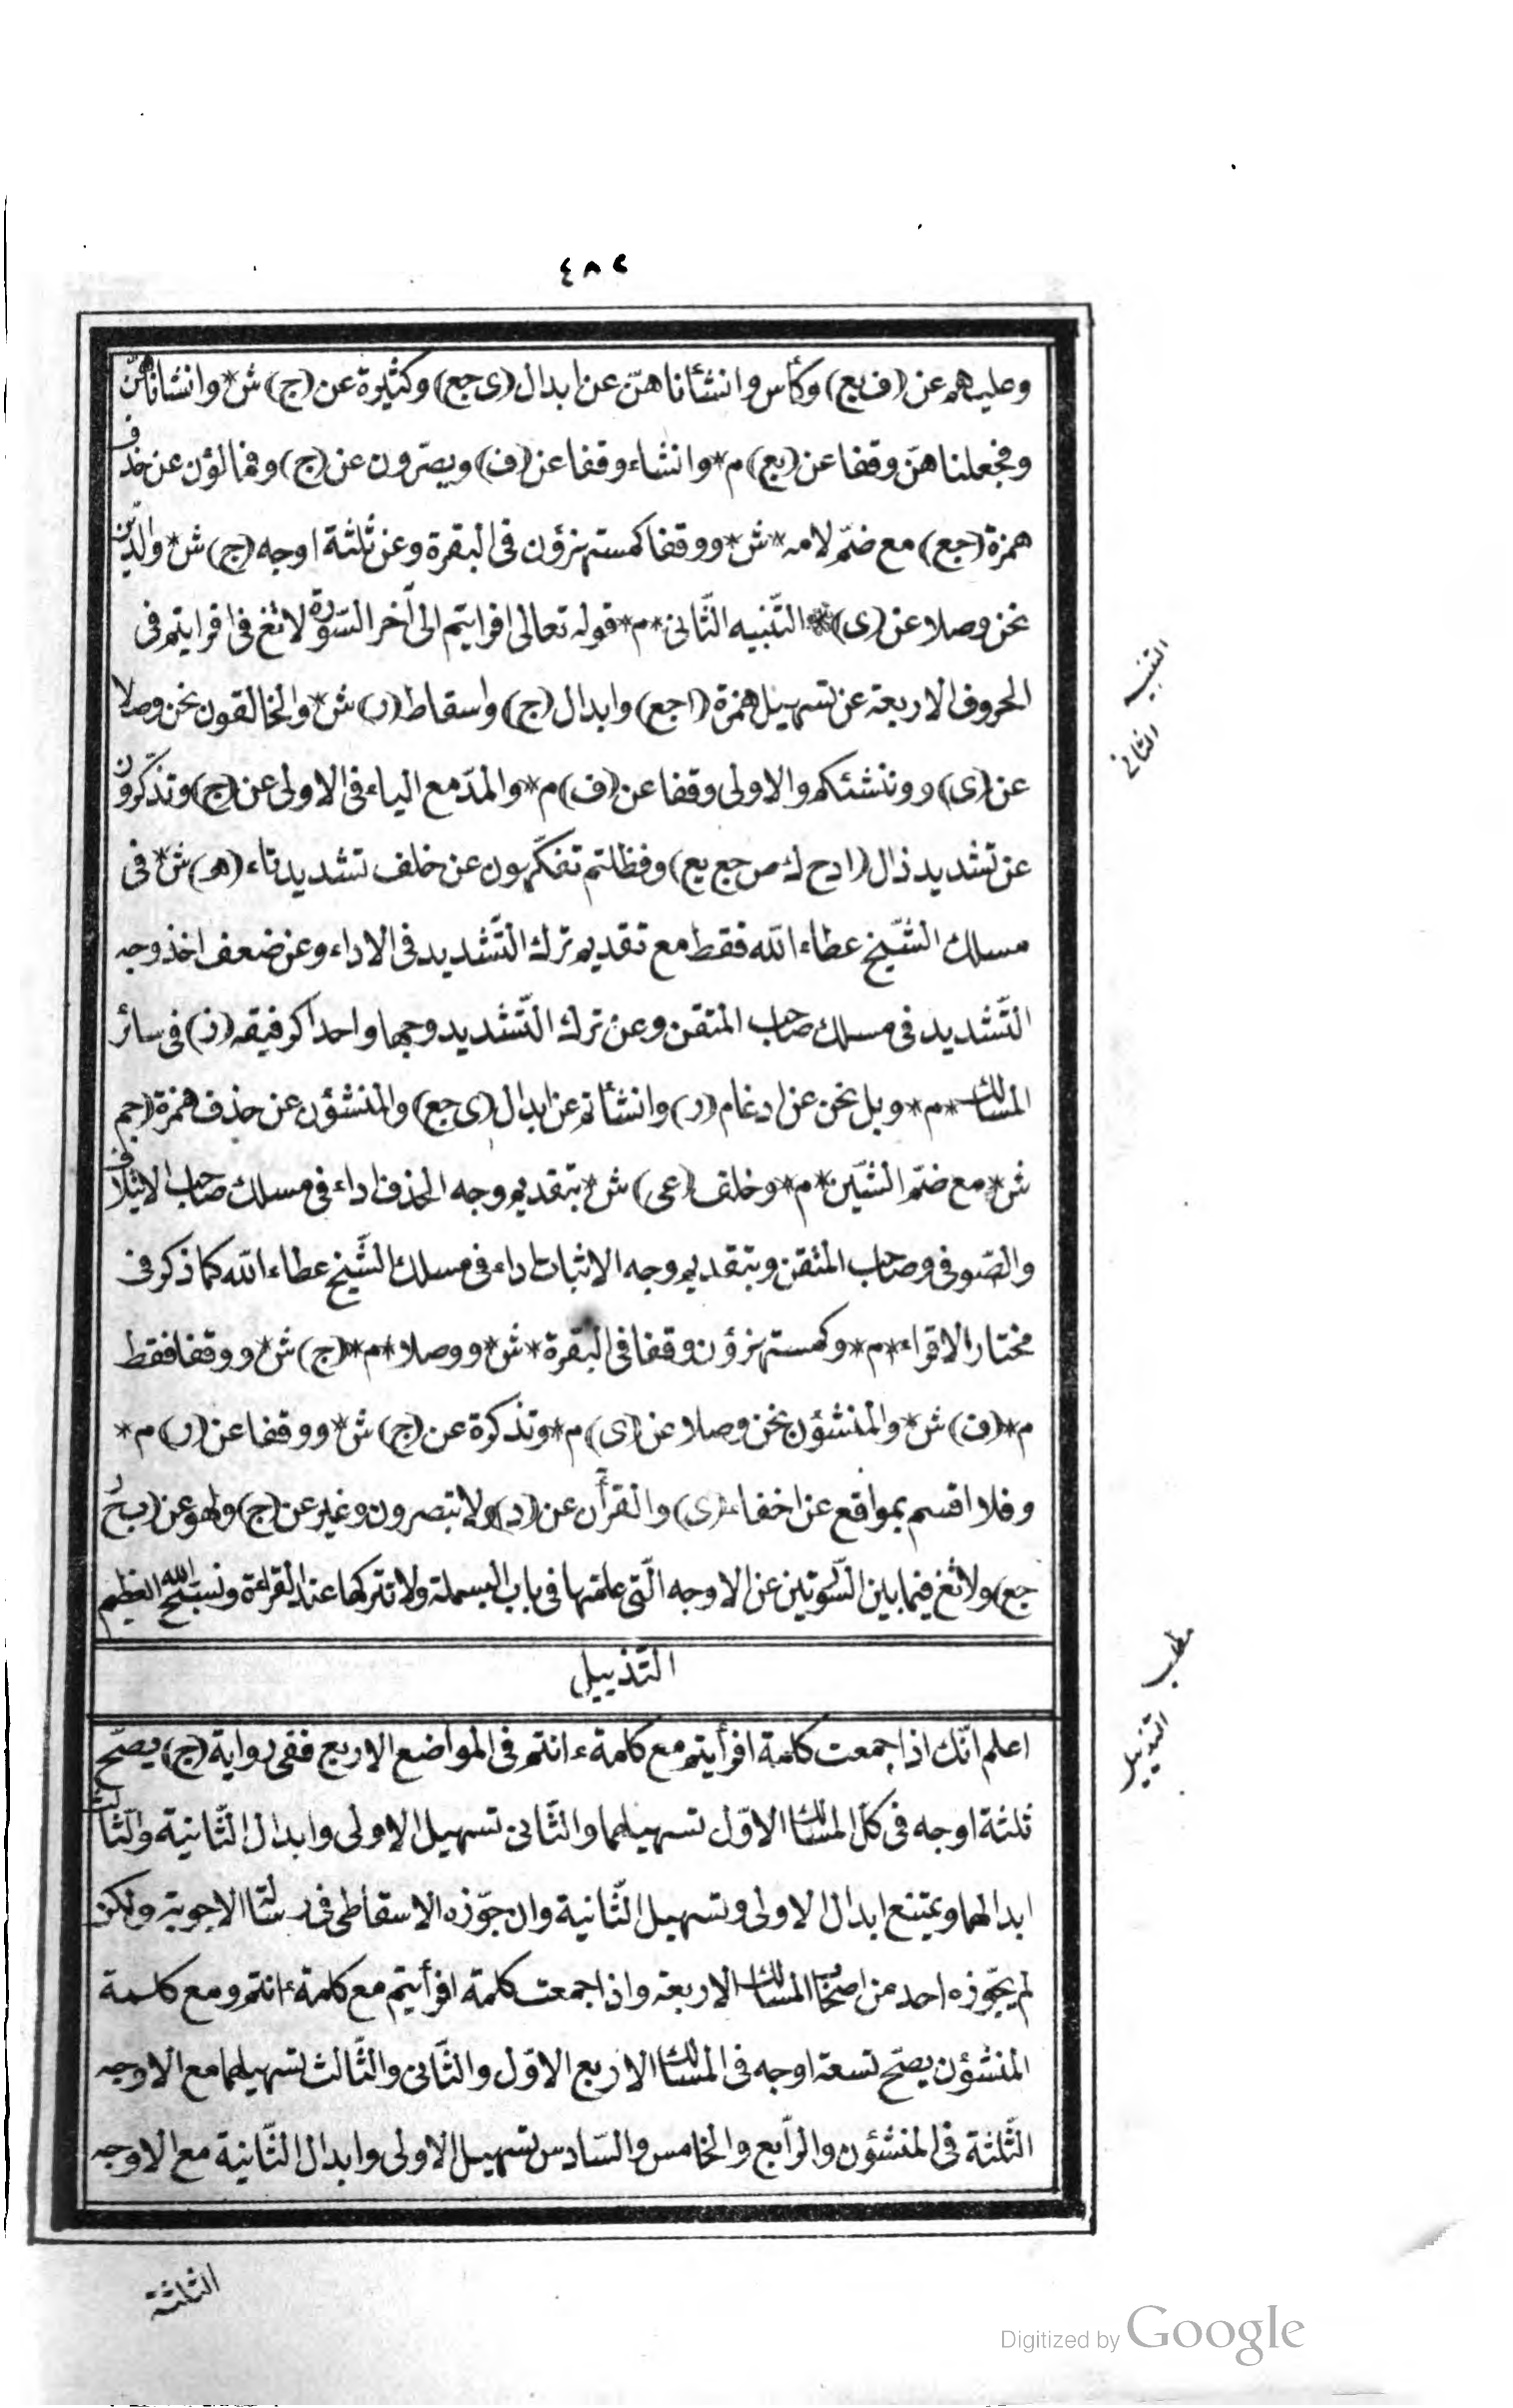 ٤٨٢
وعليهم عن (ف يع) وكأس وانشأناهنّ عن ابدال (ى جع) وكثيرة عن (ج) ش* وانشاناهنّ
وفجعلناهنّ وقفا عن (يع) م* وانشاء وقفا عن (ف) ويصرّون عن (ج) وفمالؤن عن حذف
همزة (جع) مع ضمّ لامه* ش* ووقفا كمستهزؤن فى البقرة وعن ثلثة اوجه (ج) ش* والدّين
نحن وصلا عن (ى)* التّنبيه الثّانى* م* قوله تعالى افرايتم الى آخر السّورة لا تغ فى افرايتم فى
الحروف الاربعة عن تسهيل همزة (ا جع) وابدال (ج) واسقاط (ر) ش* والخالقون نحن وصلا
عن (ى) وو ننشئكم والاولى وقفا عن (ف) م* والمدّ مع الياء فى الاولى عن (ج) وتذّكرون
عن تشديد ذال (ا د ح ك ص جع يع) وفظلتم تفكّهون عن خلف تشديد تاء (ه) ش* فى
مسلك الشّيخ عطاء الله فقط مع تقديم ترك التّشديد فى الاداء وعن ضعف اخذ وجه
التّشديد فى مسلك صاحب المتقن وعن ترك التّشديد وجها واحدا كرفيقه (ز) فى سائر
المسالك* م* وبل نحن عن ادغام (ر) وانشأتم عن ابدال (ى جع) والمنشؤن عن حذف همزة (جم
ش* مع ضمّ الشّين* م* وخلف (عى) ش* بتقديم وجه الحذف اداء فى مسلك صاحب الايتلاف
والصّوفى وصاحب المتقن وبتقديم وجه الاثبات اداء فى مسلك الشّيخ عطاء الله كما ذكر فى
مختار الاقراء* م* وكمستهزؤن وقفا فى البقرة* ش* ووصلا* م* (ج) ش* ووقفا فقط
م* (ف) ش* والمنشؤن نحن وصلا عن (ى) م* وتذكرة عن (ج) ش* ووقفا عن (ر) م*
وفلا اقسم بمواقع عن اخفاء (ى) والقرآن عن (د) ولا تبصرون وغير عن (ج) ولهو عن (ب ح ر
جع) ولا تغ فيما بين السّورتين عن الاوجه الّتى علمتها فى باب البسملة ولا تتركها عند القراءة ونسبّح الله العظيم
التّذييل
اعلم انّك اذا جمعت كلمة افرأيتم مع كلمة ءانتم فى المواضع الاربع ففى رواية (ج) يصحّ
ثلثة اوجه فى كلّ المسالك الاوّل تسهيلهما والثّانى تسهيل الاولى وابدال الثّانية والثّالث
ابدالهما ويمتنع ابدال الاولى وتسهيل الثّانية وان جوّزه الاسقاطى فى رسالة الاجوبة ولكن
لم يجوّزه احد من اصحاب المسالك الاربعة واذا جمعت كلمة افرأيتم مع كلمة ءانتم ومع كلمة
المنشؤن يصحّ تسعة اوجه فى المسالك الاربع الاوّل والثّانى والثّالث تسهيلهما مع الاوجه
الثّلثة فى المنشؤن والرّابع والخامس والسّادس تسهيل الاولى وابدال الثّانية مع الاوجه
الثلثة
التنبيه
الثانى
مطلب
التذييل
Digitized by Google